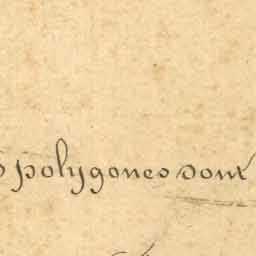 polygones sont